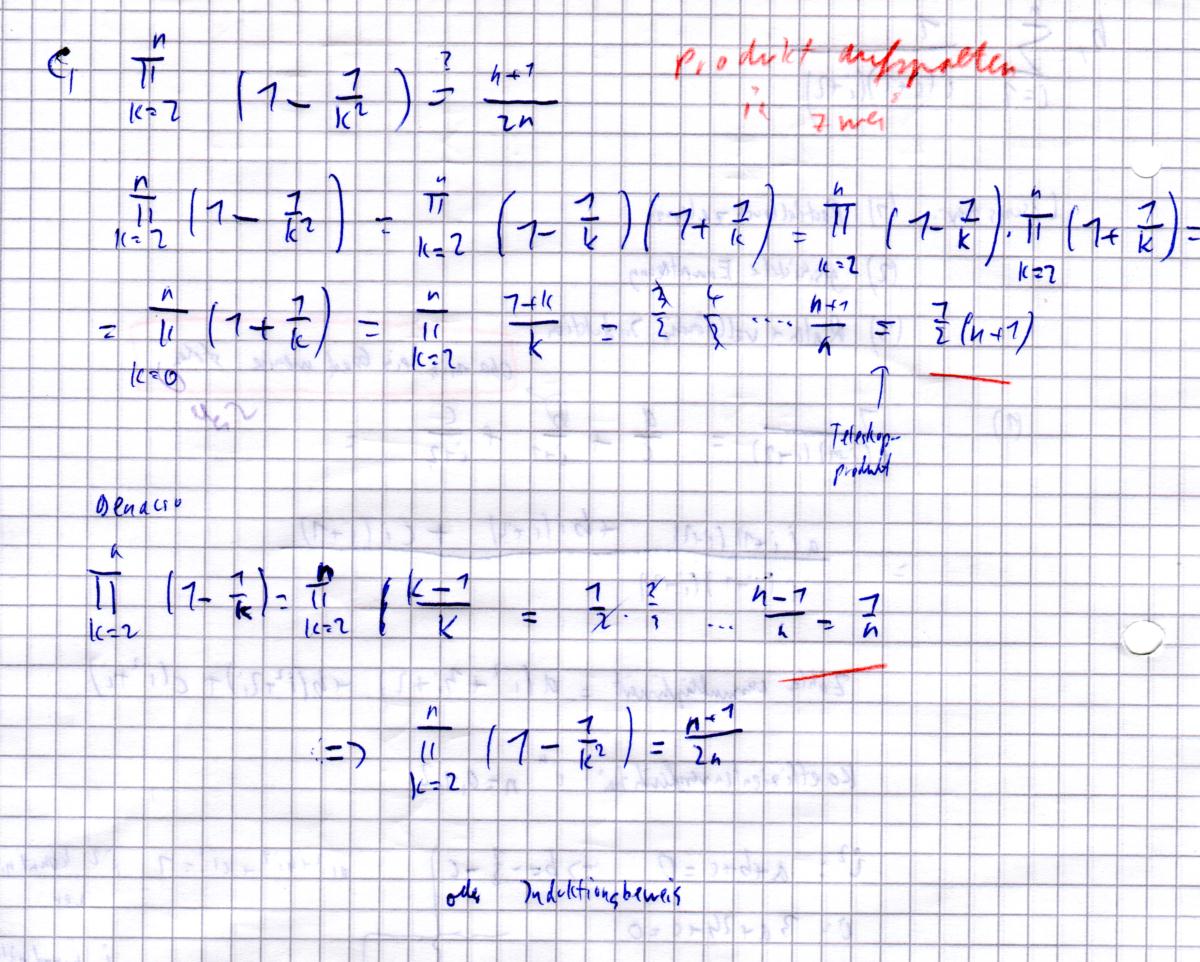 c, n∏k=2 (1 - 1/k²) =? (n+1)/2n
Produkt aufspalten
in zwei
n∏k=2 (1 - 1/k²) = n∏k=2 (1 - 1/k)(1 + 1/k) = n∏k=2 (1 - 1/k) · n∏k=2 (1 + 1/k) =
= n∏k=0 (1 + 1/k) = n∏k=2 (1+k)/k = 3/2 4/3 ..... (n+1)/n = 1/2 (n+1)
↑
Teleskop-
produkt
n∏k=2 (1 - 1/k) = n∏k=2 ( (k-1)/k = 1/2 · 2/3 ... (n-1)/n = 1/n
=> n∏k=2 (1 - 1/k²) = (n+1)/2n
oder Induktionsbeweis